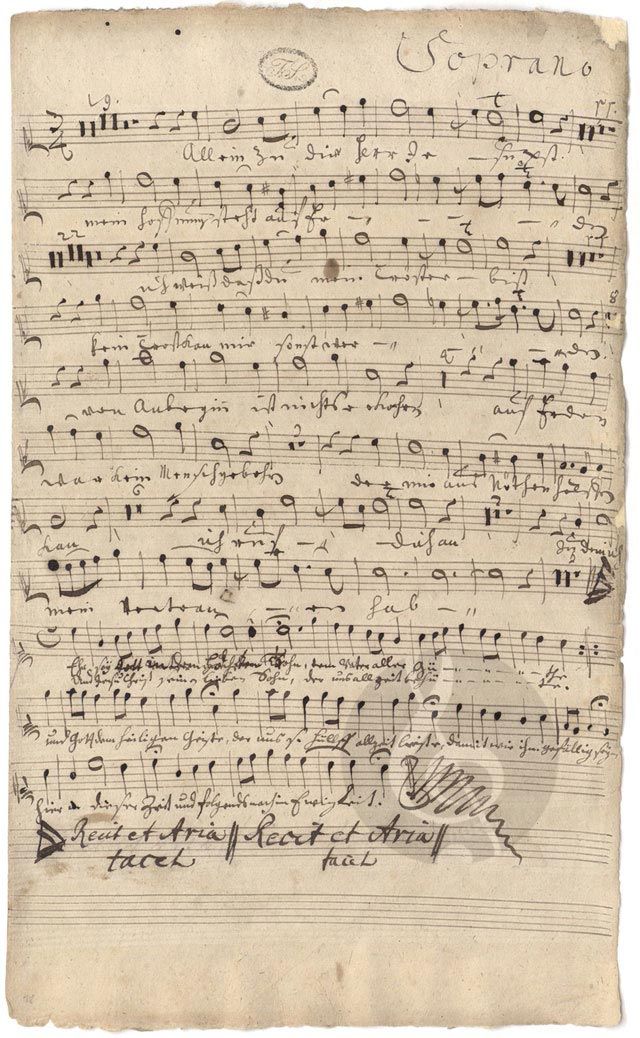 Soprano
19.
Allein zu dir Herr Je - su xst.
mein hoffnung steht auf Er - - - - den
22
ich weiß daß du mein Tröster - bist
8
kein Trost kan mir sonst wer - - - den.
von Anbegin ist nichts erkohren auf Erden
war kein Mensch gebohrn der mir aus Nöthen helffen
6
kan ich ruff - - dich an zu dem ich
mein Vertrau - - en hab - -
Ehr sey Gott in dem höchsten Thron, dem Vater aller Gü - - - - - the
Und Jesu Christ sein lieben Sohn, der uns allzeit behü - - - - - te.
und Gott dem heiligen Geiste, der uns sein Hülff allzeit leiste, damit wir ihm gefällig seyn
hier in dieser Zeit und folgends nach in Ewigkeit.
Recit et Aria || Recit et Aria ||
tacet tacet